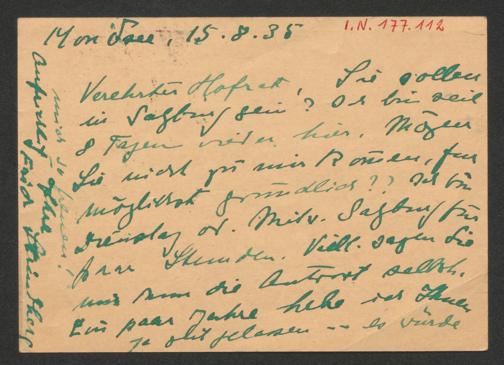 I.N. 177.112
Mondsee, 15.8.35
Verehrter Hofrat, Sie sollen
in Salzburg sein? Ich bin seit
8 Tagen wieder hier. Mögen
Sie nicht zu mir kommen, für
möglichst gründlich?? Ich bin
Dienstag od. Mitw. Salzburg für
paar Stunden. Viell. sagen Sie
mir dann die Antwort selbst.
Ein paar Jahre habe ich Ihnen
ja Zeit gelassen -- es würde
mich so freuen!
Aufrichtig Ihre
Frida Strindberg